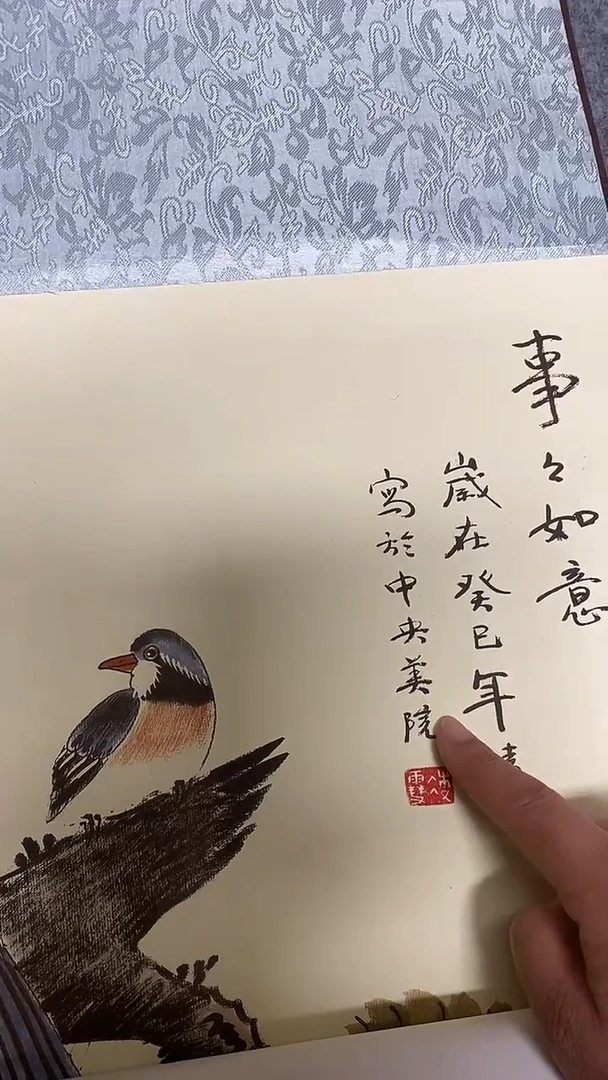 事々如意
歲在癸巳年
寫於中央美院